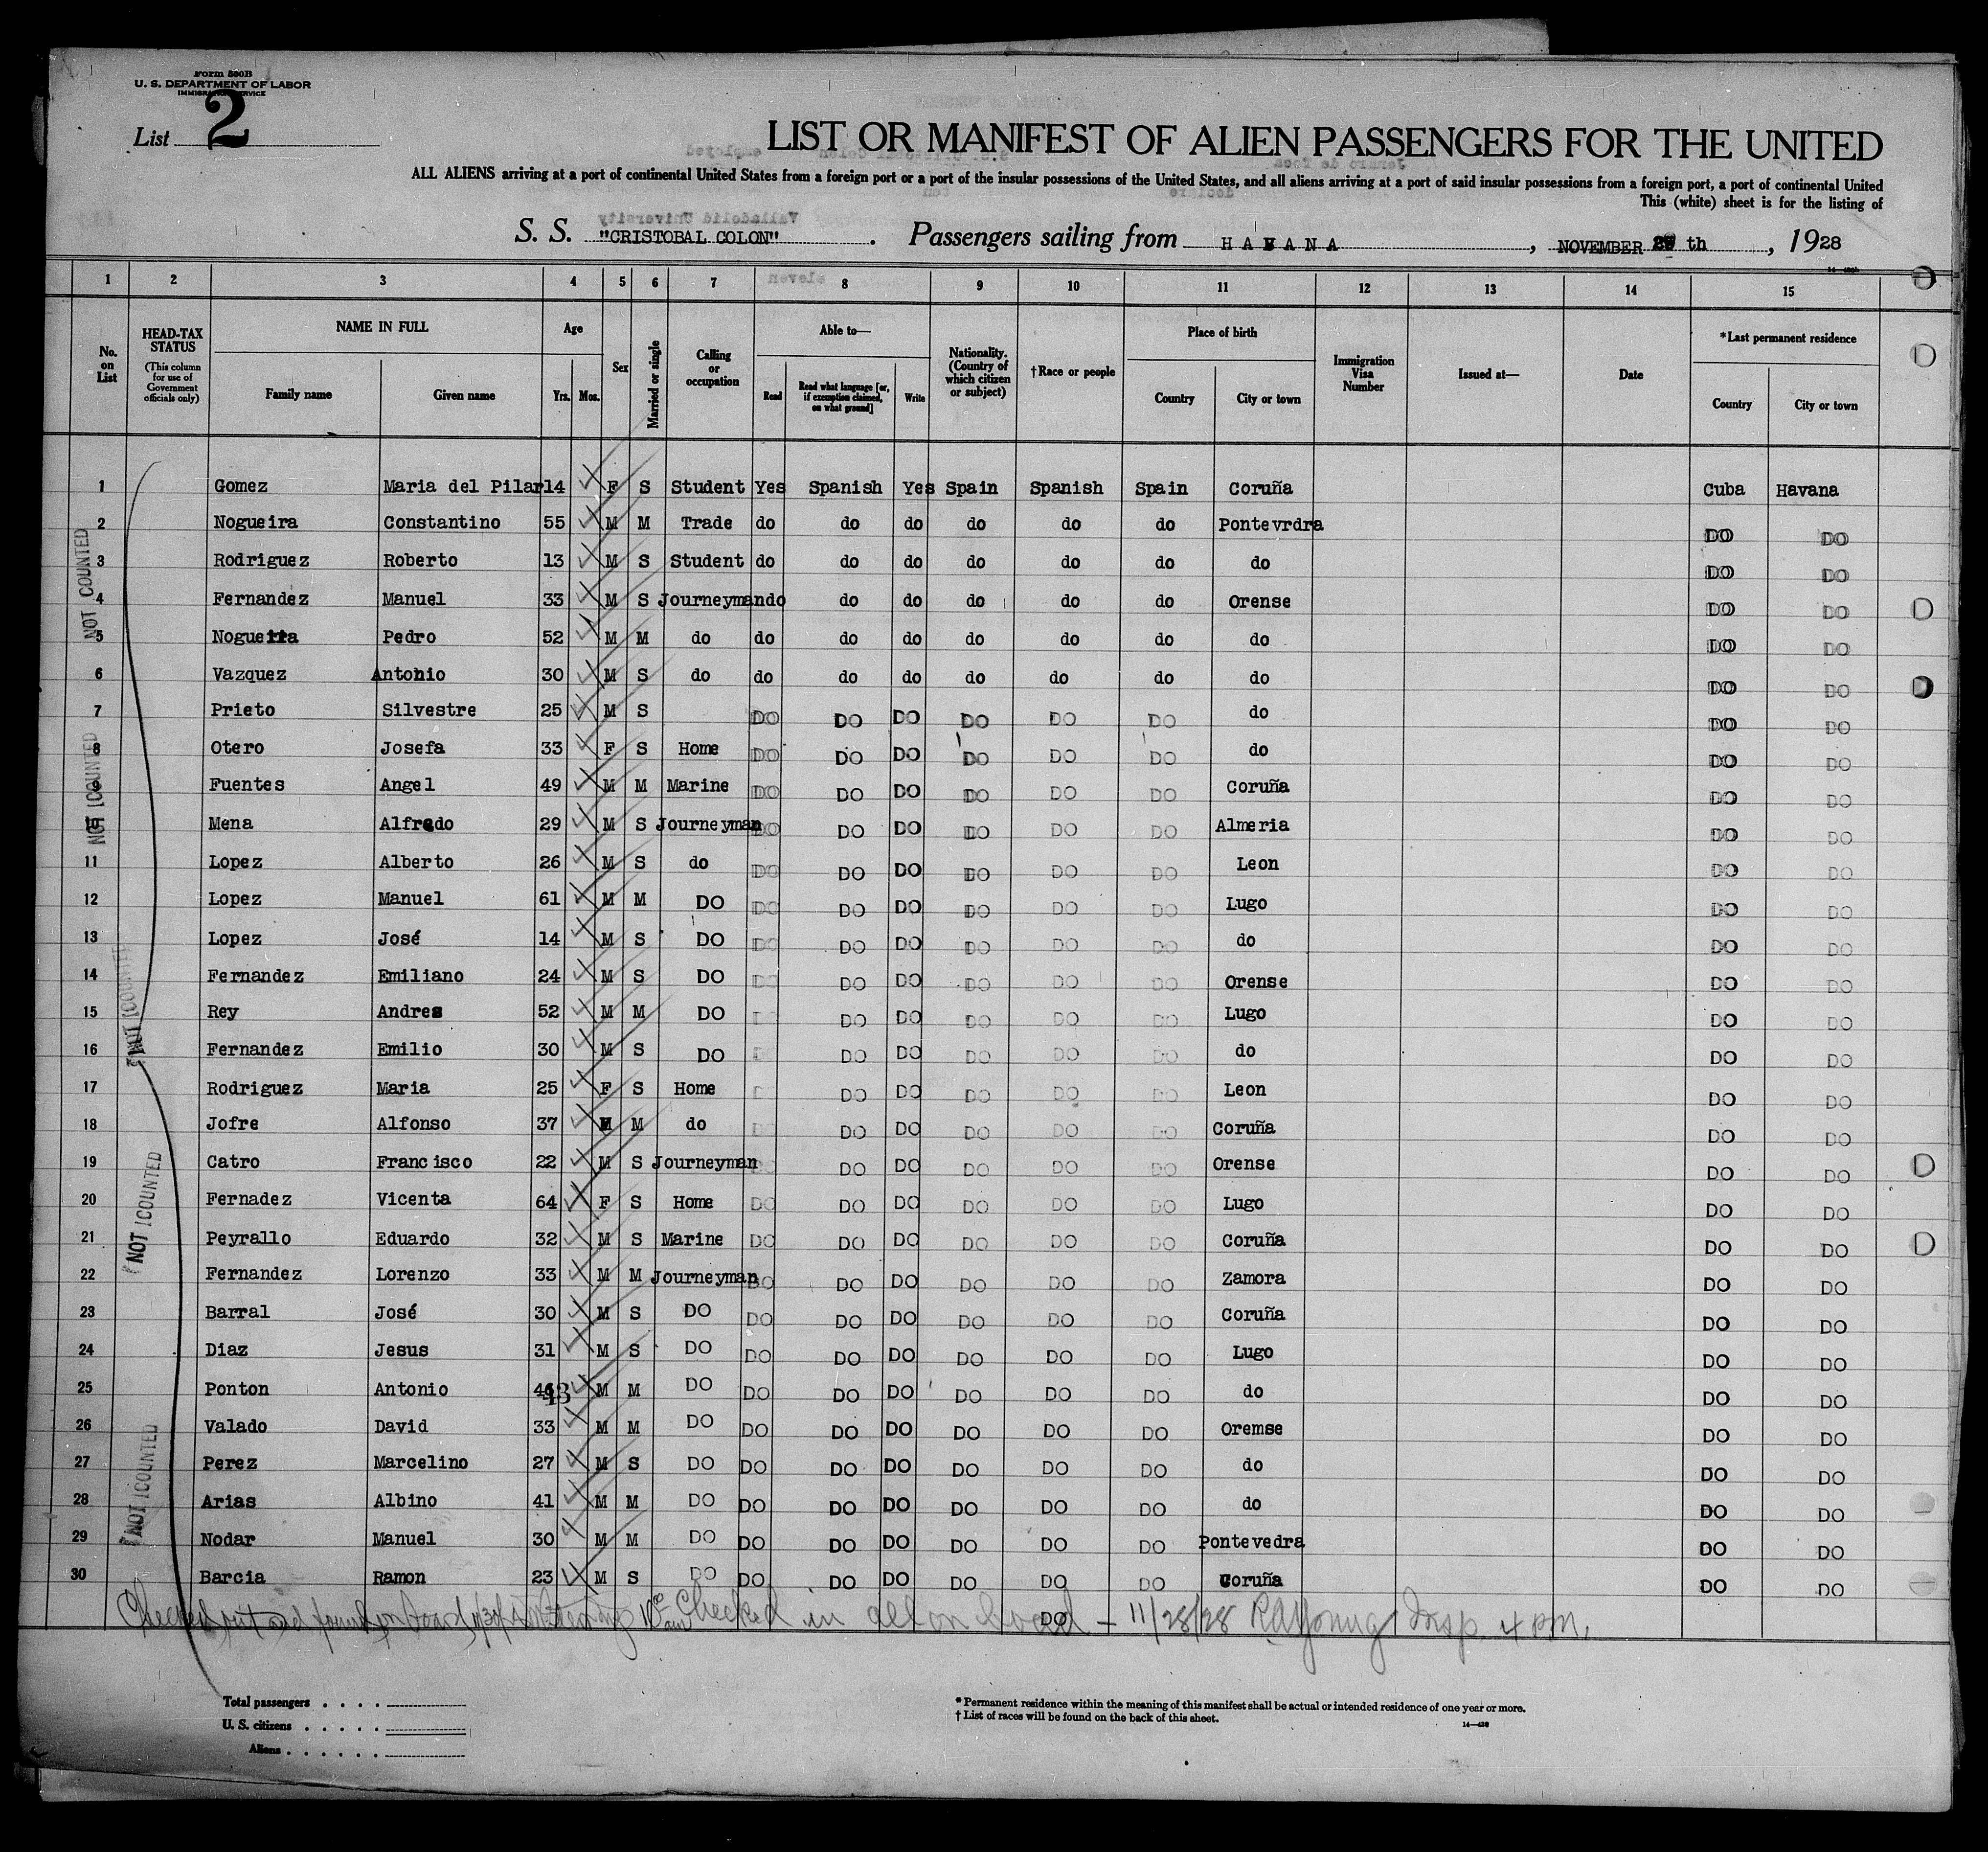 Form 500B
U. S. DEPARTMENT OF LABOR
IMMIGRATION SERVICE
List 2
LIST OR MANIFEST OF ALIEN PASSENGERS FOR THE UNITED
ALL ALIENS arriving at a port of continental United States from a foreign port or a port of the insular possessions of the United States, and all aliens arriving at a port of said insular possessions from a foreign port, a port of continental United
This (white) sheet is for the listing of
S. S. "CRISTOBAL COLON". Passengers sailing from HAVANA, NOVEMBER th, 1928
1 2 3 4 5 6 7 8 9 10 11 12 13 14 15
No. on List
HEAD-TAX STATUS
(This column for use of Government officials only)
NAME IN FULL
Family name Given name
Age
Yrs. Mos.
Sex
Married or single
Calling or occupation
Able to—
Read
Read what language [or, if exemption claimed, on what ground]
Write
Nationality. (Country of which citizen or subject)
†Race or people
Place of birth
Country City or town
Immigration Visa Number
Issued at—
Date
*Last permanent residence
Country City or town
1 Gomez Maria del Pilar 14 F S Student Yes Spanish Yes Spain Spanish Spain Coruña Cuba Havana
2 Nogueira Constantino 55 M M Trade do do do do do do Pontevrdra DO DO
3 Rodriguez Roberto 13 M S Student do do do do do do do DO DO
4 Fernandez Manuel 33 M S Journeyman do do do do do do Orense DO DO
5 Nogueira Pedro 52 M M do do do do do do do do DO DO
6 Vazquez Antonio 30 M S do do do do do do do do DO DO
7 Prieto Silvestre 25 M S DO DO DO DO DO DO do DO DO
8 Otero Josefa 33 F S Home DO DO DO DO DO DO do DO DO
9 Fuentes Angel 49 M M Marine DO DO DO DO DO DO Coruña DO DO
10 Mena Alfredo 29 M S Journeyman DO DO DO DO DO DO Almeria DO DO
11 Lopez Alberto 26 M S do DO DO DO DO DO DO Leon DO DO
12 Lopez Manuel 61 M M DO DO DO DO DO DO DO Lugo DO DO
13 Lopez José 14 M S DO DO DO DO DO DO DO do DO DO
14 Fernandez Emiliano 24 M S DO DO DO DO DO DO DO Orense DO DO
15 Rey Andres 52 M M DO DO DO DO DO DO Lugo DO DO
16 Fernandez Emilio 30 M S DO DO DO DO DO DO do DO DO
17 Rodriguez Maria 25 F S Home DO DO DO DO DO Leon DO DO
18 Jofre Alfonso 37 M M do DO DO DO DO DO DO Coruña DO DO
19 Catro Francisco 22 M S Journeyman DO DO DO DO DO DO Orense DO DO
20 Fernadez Vicenta 64 F S Home DO DO DO DO DO DO Lugo DO DO
21 Peyrallo Eduardo 32 M S Marine DO DO DO DO DO DO Coruña DO DO
22 Fernandez Lorenzo 33 M M Journeyman DO DO DO DO DO DO Zamora DO DO
23 Barral José 30 M S DO DO DO DO DO DO DO Coruña DO DO
24 Diaz Jesus 31 M S DO DO DO DO DO DO DO Lugo DO DO
25 Ponton Antonio 43 M M DO DO DO DO DO DO DO do DO DO
26 Valado David 33 M M DO DO DO DO DO DO DO Oremse DO DO
27 Perez Marcelino 27 M S DO DO DO DO DO DO DO do DO DO
28 Arias Albino 41 M M DO DO DO DO DO DO DO do DO DO
29 Nodar Manuel 30 M M DO DO DO DO DO DO DO Pontevedra DO DO
30 Barcia Ramon 23 M S DO DO DO DO DO DO DO Coruña DO DO
DO
NOT COUNTED
NOT COUNTED
NOT COUNTED
NOT COUNTED
NOT COUNTED
Checked out and found on board Checked in all on board — 11/28/28 RA Young Insp. 4 PM.
Total passengers
U. S. citizens
Aliens
* Permanent residence within the meaning of this manifest shall be actual or intended residence of one year or more.
† List of races will be found on the back of this sheet.